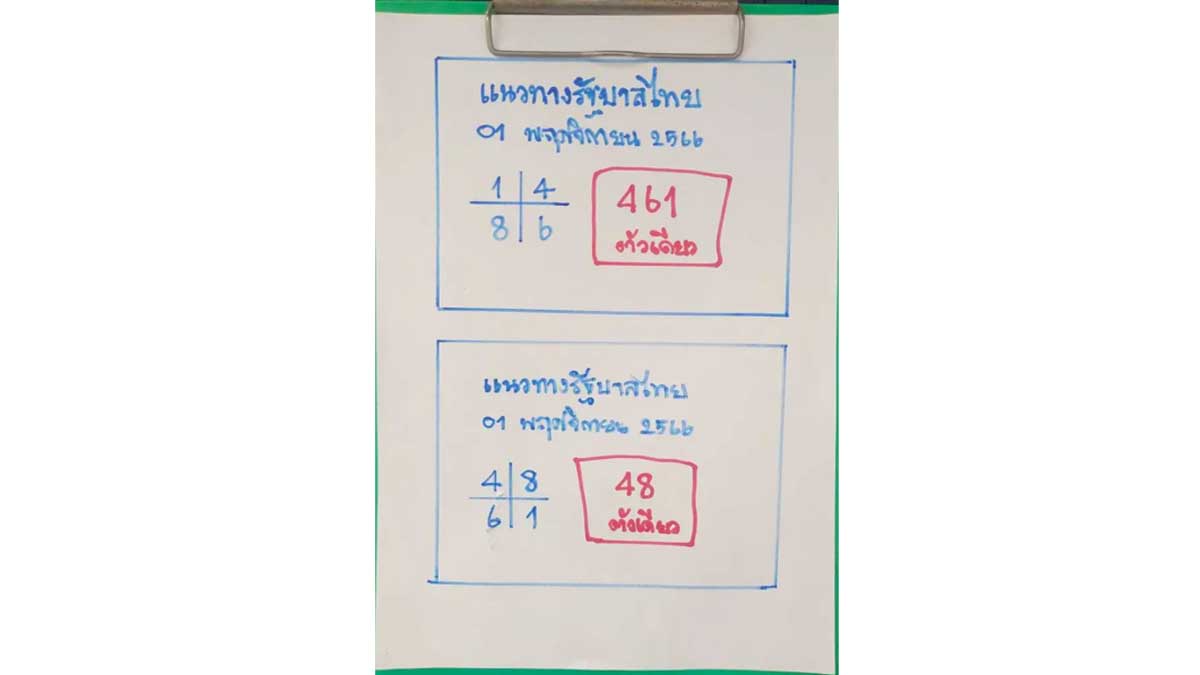 แนวทางรัฐบาลไทย
01 พฤศจิกายน 2566
1 4
8 6
461
ตัวเดียว
แนวทางรัฐบาลไทย
01 พฤศจิกายน 2566
4 8
6 1
48
ตัวเดียว